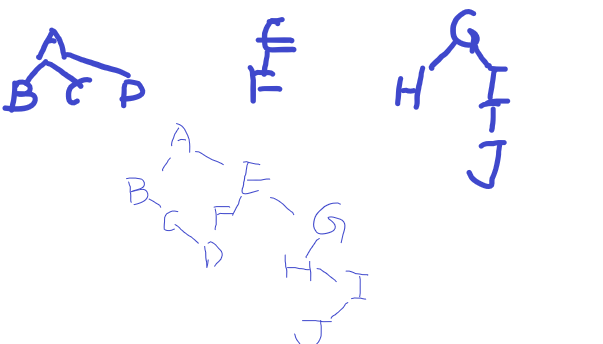 A E G
B C D F H I
J
A
B E
C F G
D H I
J